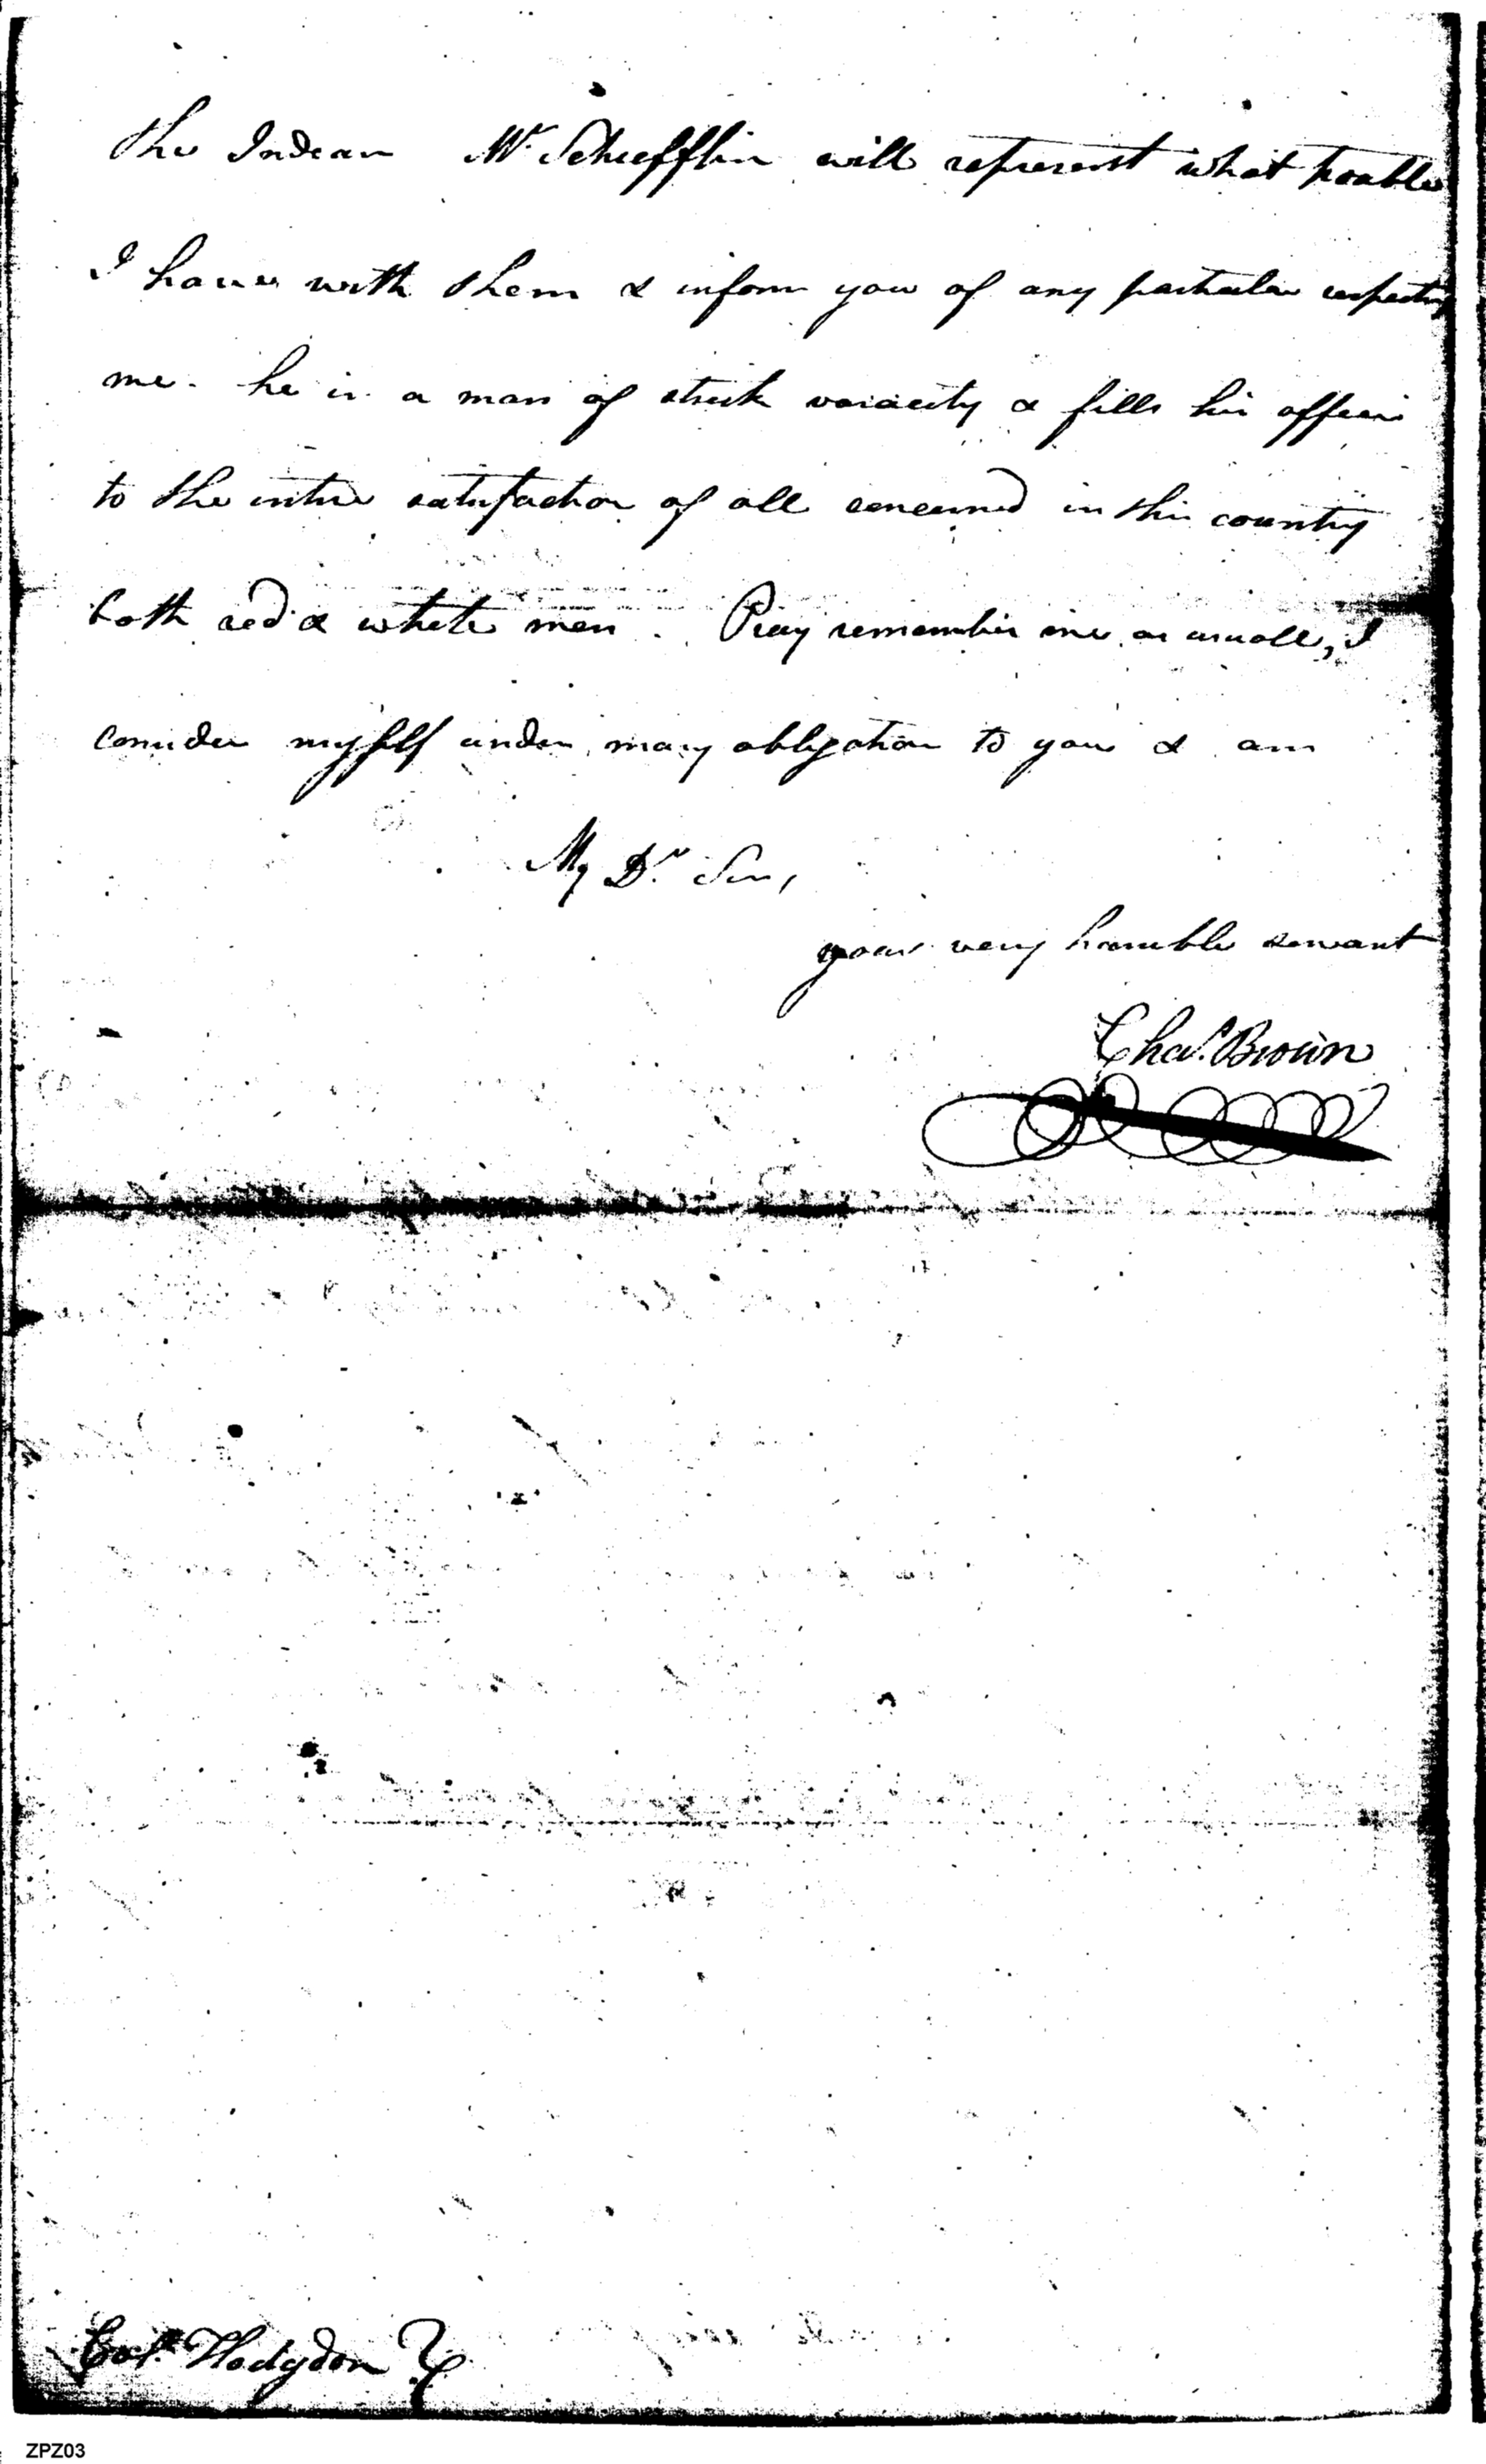 the Indian Mr. Schiefflin will represent what trouble
I have with them & inform you of any particular respecting
me. he is a man of strick varacity & fills his office
to the intire satisfaction of all concerned in this country
both red & white men. Pray remember me as usuall, I
consider myself under many obligation to you & am
My Dr. Sir,
your very humble servant
Chas. Brown
Col. Hodgdon
ZPZ03